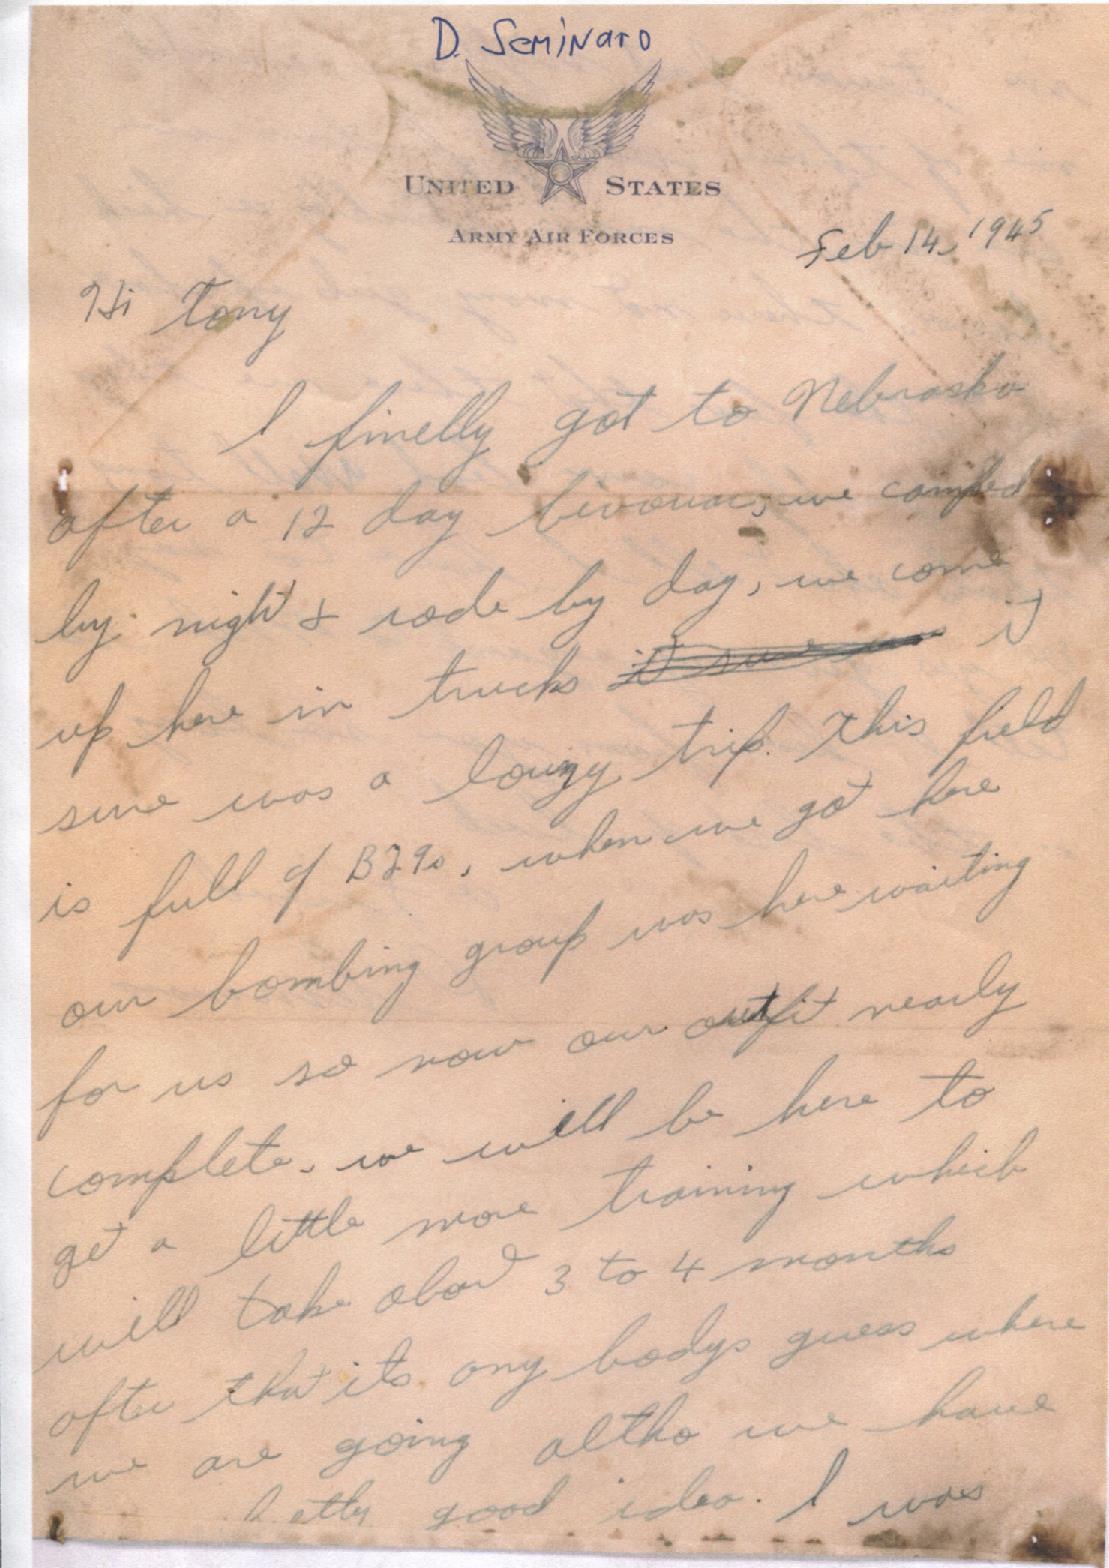 D. Seminaro
UNITED STATES
ARMY AIR FORCES
Feb 14, 1945
Hi Tony
I finelly got to Nebraska
after a 12 day bivouac, we camped
by night & rode by day, we come
up here in trucks it
sure was a louzy trip. This field
is full of B29s, when we got here
our bombing group was here waiting
for us so now our outfit nearly
complete. we will be here to
get a little more training which
will take about 3 to 4 months
after that its any bodys guess where
we are going altho we have
good idea. I was